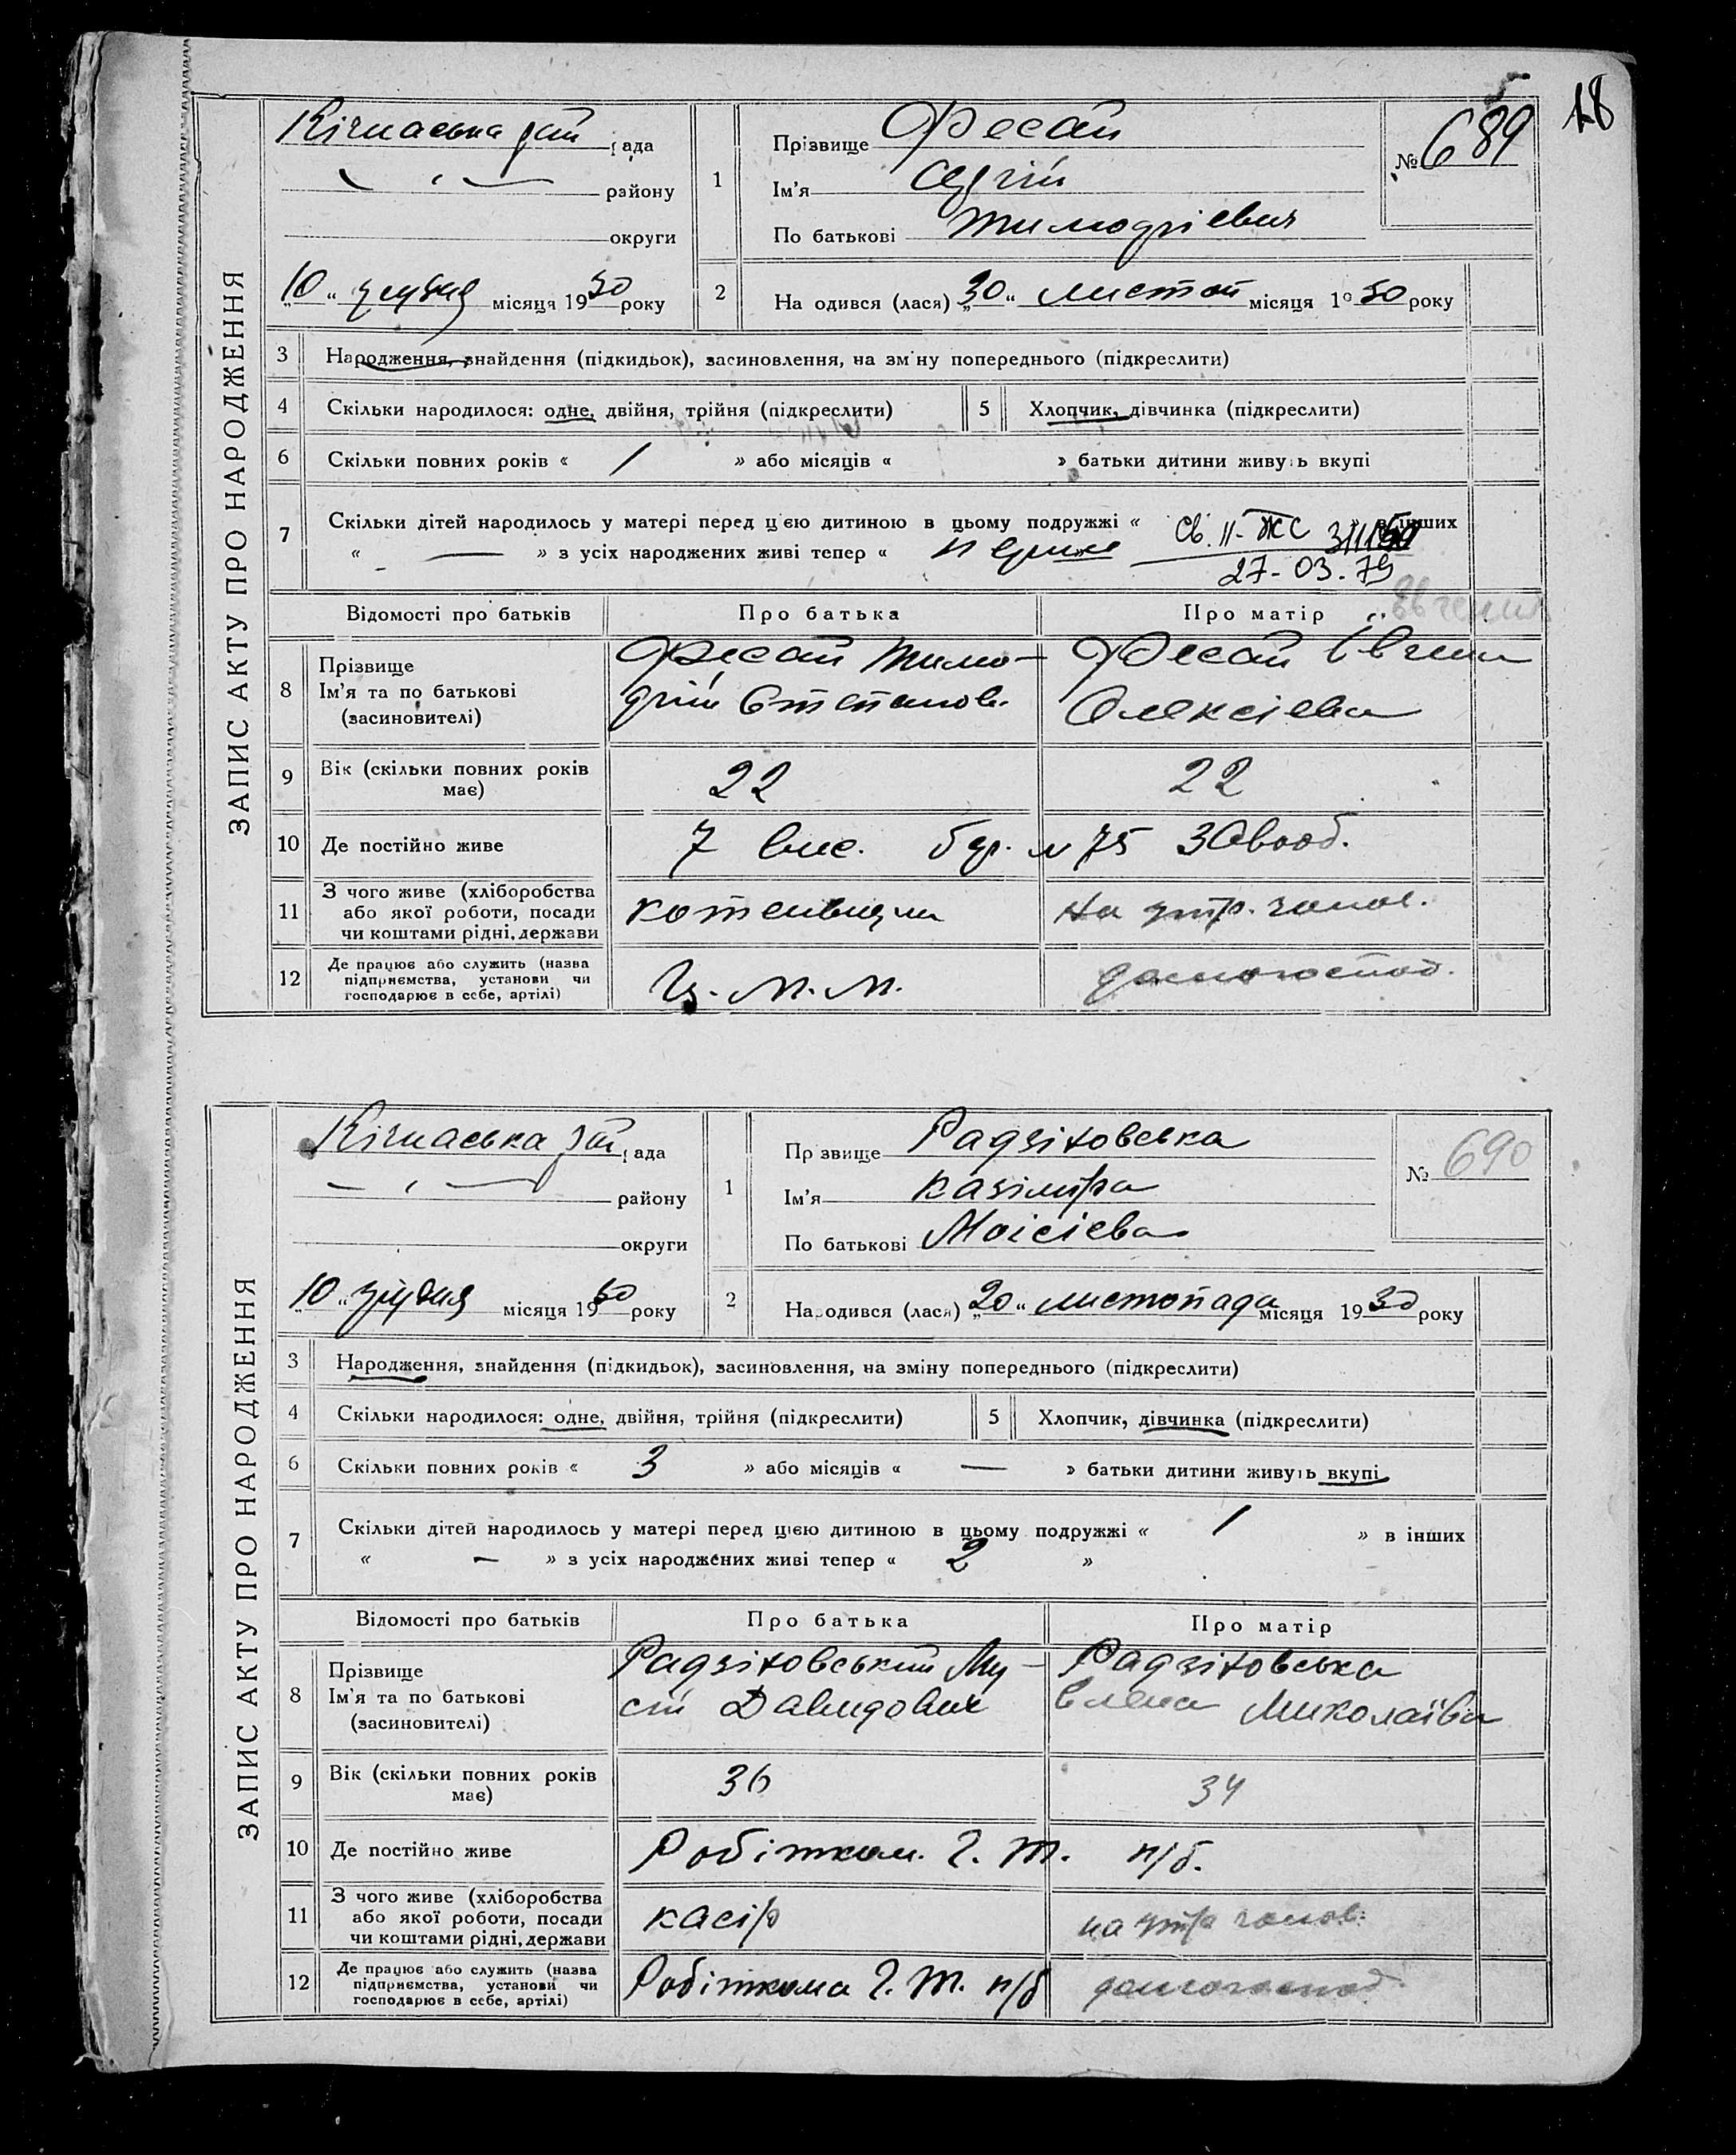 18
ЗАПИС АКТУ ПРО НАРОДЖЕННЯ
Кічкаська рай рада
району
округи
10 грудня місяця 1930 року
1
Прізвище Фесай
Ім'я Сергій
По батькові Тимофієвич
№ 689
2
На одився (лася) „30“ листоп місяця 1930 року
3 Народження, знайдення (підкидьок), засиновлення, на зміну попереднього (підкреслити)
4 Скільки народилося: одне, двійня, трійня (підкреслити)
5 Хлопчик, дівчинка (підкреслити)
6 Скільки повних років « 1 » або місяців « » батьки дитини живуть вкупі
7 Скільки дітей народилось у матері перед цією дитиною в цьому подружжі « » в інших
« — » з усіх народжених живі тепер « перше
Св. II-ЖС
27-03.79
Відомості про батьків
Про батька
Про матір
8 Прізвище
Ім'я та по батькові
(засиновителі)
Фесай Тимо-
фій Степанов.
Фесай Євгенія
Олексієва
9 Вік (скільки повних років
має)
22
22
10 Де постійно живе
7 вис. бар. № 75
11 З чого живе (хліборобства
або якої роботи, посади
чи коштами рідні, держави
на утр. чолов.
12 Де працює або служить (назва
підприємства, установи чи
господарює в себе, артілі)
домогоспод.
ЗАПИС АКТУ ПРО НАРОДЖЕННЯ
Кічкаська рай рада
району
округи
10 „грудня місяця 1930 року
1
Пр звище Радзіховська
Ім'я Казіміра
По батькові Моісієва
№ 690
2
Народився (лася) „20“ листопада місяця 1930 року
3 Народження, знайдення (підкидьок), засиновлення, на зміну попереднього (підкреслити)
4 Скільки народилося: одне, двійня, трійня (підкреслити)
5 Хлопчик, дівчинка (підкреслити)
6 Скільки повних років « 3 » або місяців « — » батьки дитини живуть вкупі
7 Скільки дітей народилось у матері перед цією дитиною в цьому подружжі « 1 » в інших
« — » з усіх народжених живі тепер « 2 »
Відомості про батьків
Про батька
Про матір
8 Прізвище
Ім'я та по батькові
(засиновителі)
Радзіховський Му-
сій Давидович
Радзіховська
Єлена Миколаїва
9 Вік (скільки повних років
має)
36
34
10 Де постійно живе
Робітком. Г. Т. п/б.
11 З чого живе (хліборобства
або якої роботи, посади
чи коштами рідні, держави
касір
на утр чолов.
12 Де працює або служить (назва
підприємства, установи чи
господарює в себе, артілі)
Робіткома Г. Т. п/б
домогоспод.